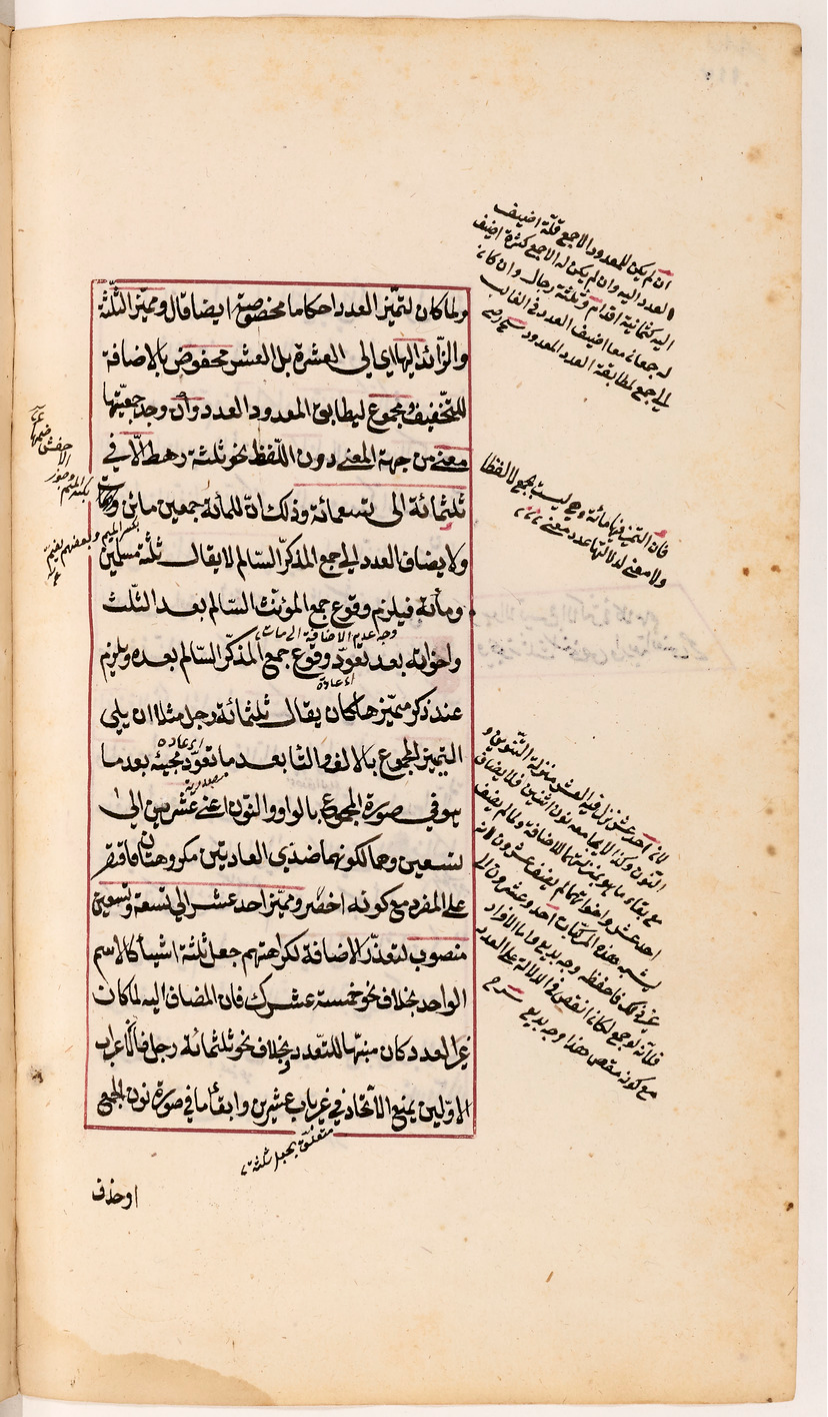 ولما كان لتميّز العدد احكاما مخصوصة ايضا قال ومميّز الثّلثة
والزّائد اليها اي الى العشرة بل العشر مخفوض بالاضافة
للتخفيف ومجموع ليطابق المعدود العدد وان وجد جمعيّتها
معنى من جهة المعنى دون اللّفظ نحو ثلثة رهط الّا في
ثلثمائة الى تسعمائة وذلك انّ للمائة جمعين مائن ومئات
ولا يضاف العدد الى جمع المذكّر السّالم لا يقال ثلثة مسلمين
ومأتة فيلزم وقوع جمع المؤنّث السّالم بعد الثّلث
وجه عدم الاضافة الى مات
واخواته بعد تعوّد وقوع جمع المذكّر السّالم بعده ويلزم
اي عادة
عند ذكر مميّزها كان يقال ثلثمائة رجل مثلا ان يلي
التميز المجموع بالالف والتّا بعد ما تعوّد مجيئه بعد ما
اي عاده
هو في صورة المجموع بالواو والنّون اعني عشرين الى
تسعين وهما لكونهما ضدّي العادتين مكروهتان فاقتصر
على المفرد مع كونه اخصر ومميّز احد عشر الى تسعة وتسعين
منصوب لتعذّر الاضافة لكراهتهم جعل ثلثة اشيأ كالاسم
الواحد بخلاف نحو خمسة عشرك فان المضاف اليه لما كان
غير العدد كان منبّها للتعدد وبخلاف نحو ثلثمائة رجل فان اعراب
الاوّلين يمنع الاتّحاد في غير باب عشرين وابقأ ما في صورة نون الجمع
متعلّق بجعل ثلثة
او حذف
ان لم يكن للمعدود الا جمع قلّة اضيف
العدد اليه وان لم يكن له الا جمع كثرة اضيف
اليه كثمانية اقدام وثلثة رجال وان كان
له جمعان معا اضيف العدد في الغالب
الى جمع لمطابقة العدد المعدود
فان التميز فيها مائة وهي ليست بجمع لا لفظا
ولا معنى لدلالتها عدد معين
لان احد عشر نزل فيه العشر منزلة التّنوين و
النّون وكذا لا يجامعه نون اثنين فلا يضاف
مع بقاء ما هو بمنزلتها للاضافة ولما لم يضف
احد عشر واخواتها لم يضف عشرون لانه
يشبه هذه المركّبات احد وعشرون الى
غير ذلك فاحفظه وجه بديع واما الافراد
فلانّه لو جمع لكان انقص في الدلالة على العدد
مع كونه مقصرا وهذا وجه بديع شرح
بكسر الميم وبعضهم يضم